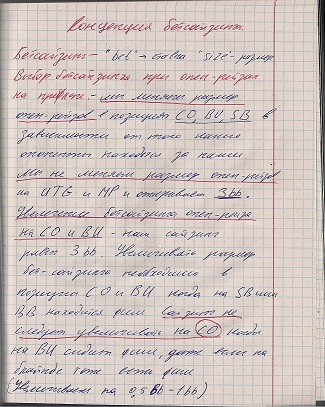 Концепция бетсайзинга.
Бетсайзинг - "bet" - ставка "size" - размер
Выбор бетсайзинга при опен-рейзах
на префлопе - мы меняем размер
опен-рейзов в позициях CO, BU, SB в
зависимости от того какие
оппоненты находятся за нами
Мы не меняем размер опен-рейзов
на UTG и MP и открываем 3bb.
Увеличение бетсайзинга опен-рейза
на CO и BU - наш сайзинг
равен 3bb. Увеличивать размер
бет-сайзинга необходимо в
позиции CO и BU когда на SB или
BB находится фиш. Сайзинг не
следует увеличивать на CO когда
на BU сидит фиш, даже если на
блайндах тоже есть фиш
(Увеличиваем на 0,5bb - 1bb)